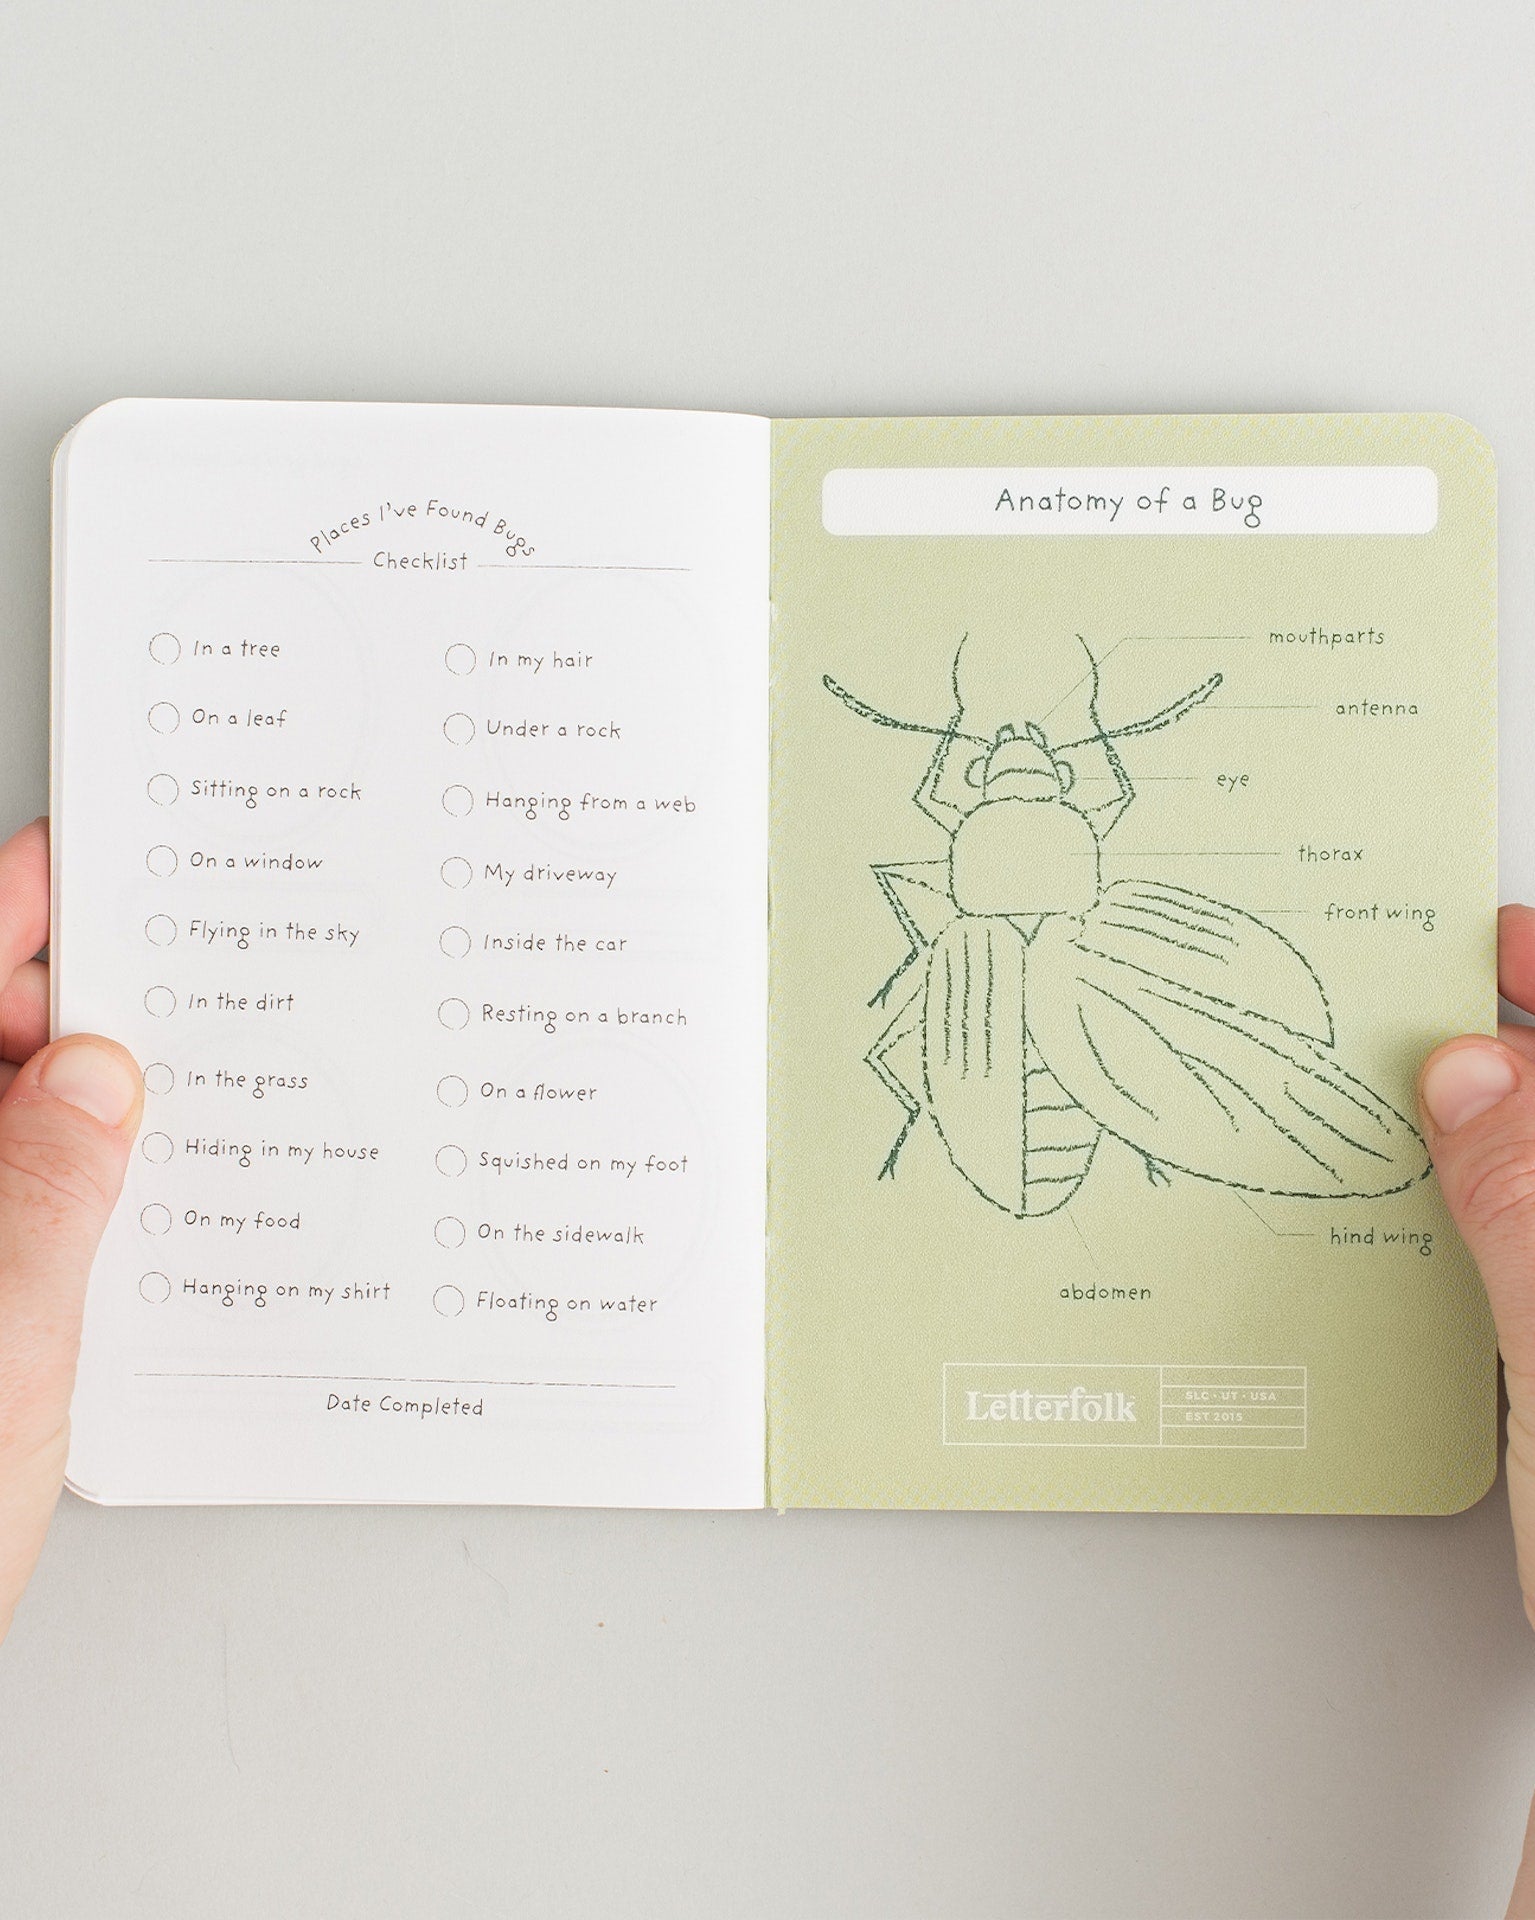 Places I've Found Bugs
Checklist
In a tree
On a leaf
Sitting on a rock
On a window
Flying in the sky
In the dirt
In the grass
Hiding in my house
On my food
Hanging on my shirt
In my hair
Under a rock
Hanging from a web
My driveway
Inside the car
Resting on a branch
On a flower
Squished on my foot
On the sidewalk
Floating on water
Date Completed
Anatomy of a Bug
mouthparts
antenna
eye
thorax
front wing
hind wing
abdomen
Letterfolk
SLC • UT • USA
EST 2015